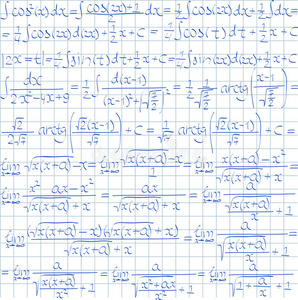 ∫cos²(x)dx = ∫(cos(2x)+1)/2 dx = 1/2∫cos(2x)dx + 1/2∫dx
= 1/4∫cos(2x)d(2x) + 1/2 x + C = 1/4∫cos(t)dt + 1/2 x + C =
|2x=t| = 1/4 sin(t)dt + 1/2 x + C = 1/4∫sin(2x)d(2x) + 1/2 x + C
∫dx/(2x²-4x+9) = 1/2∫d(x-1)/((x-1)²+|√(7/2)|²) = 1/2 · 1/√(7/2) (x-1)/√(7/2)
√2/(2√7) arctg(√2(x-1)/√7) + C = 1/√14 arctg(√2(x-1)/√7) + C =
lim √(x(x+a)) - x = lim (√(x(x+a)) - x)/1 = lim (x(x+a) - x²)/(√(x(x+a)) + x)
lim (x² ax - x²)/(√(x(x+a)) + x) = ax/(√(x(x+a)) + x) = lim a/(√(x(x+a))/x + 1)
lim (√(x(x+a)) - x)(√(x(x+a)) + x)/(√(x(x+a)) + x) = lim a/(√(x(x+a)/x²) + 1) =
= lim a/(√(x(x+a)/x²) + 1) = lim a/(√((x²+ax)/x²) + 1) = lim a/(√(1+a/x) + 1)